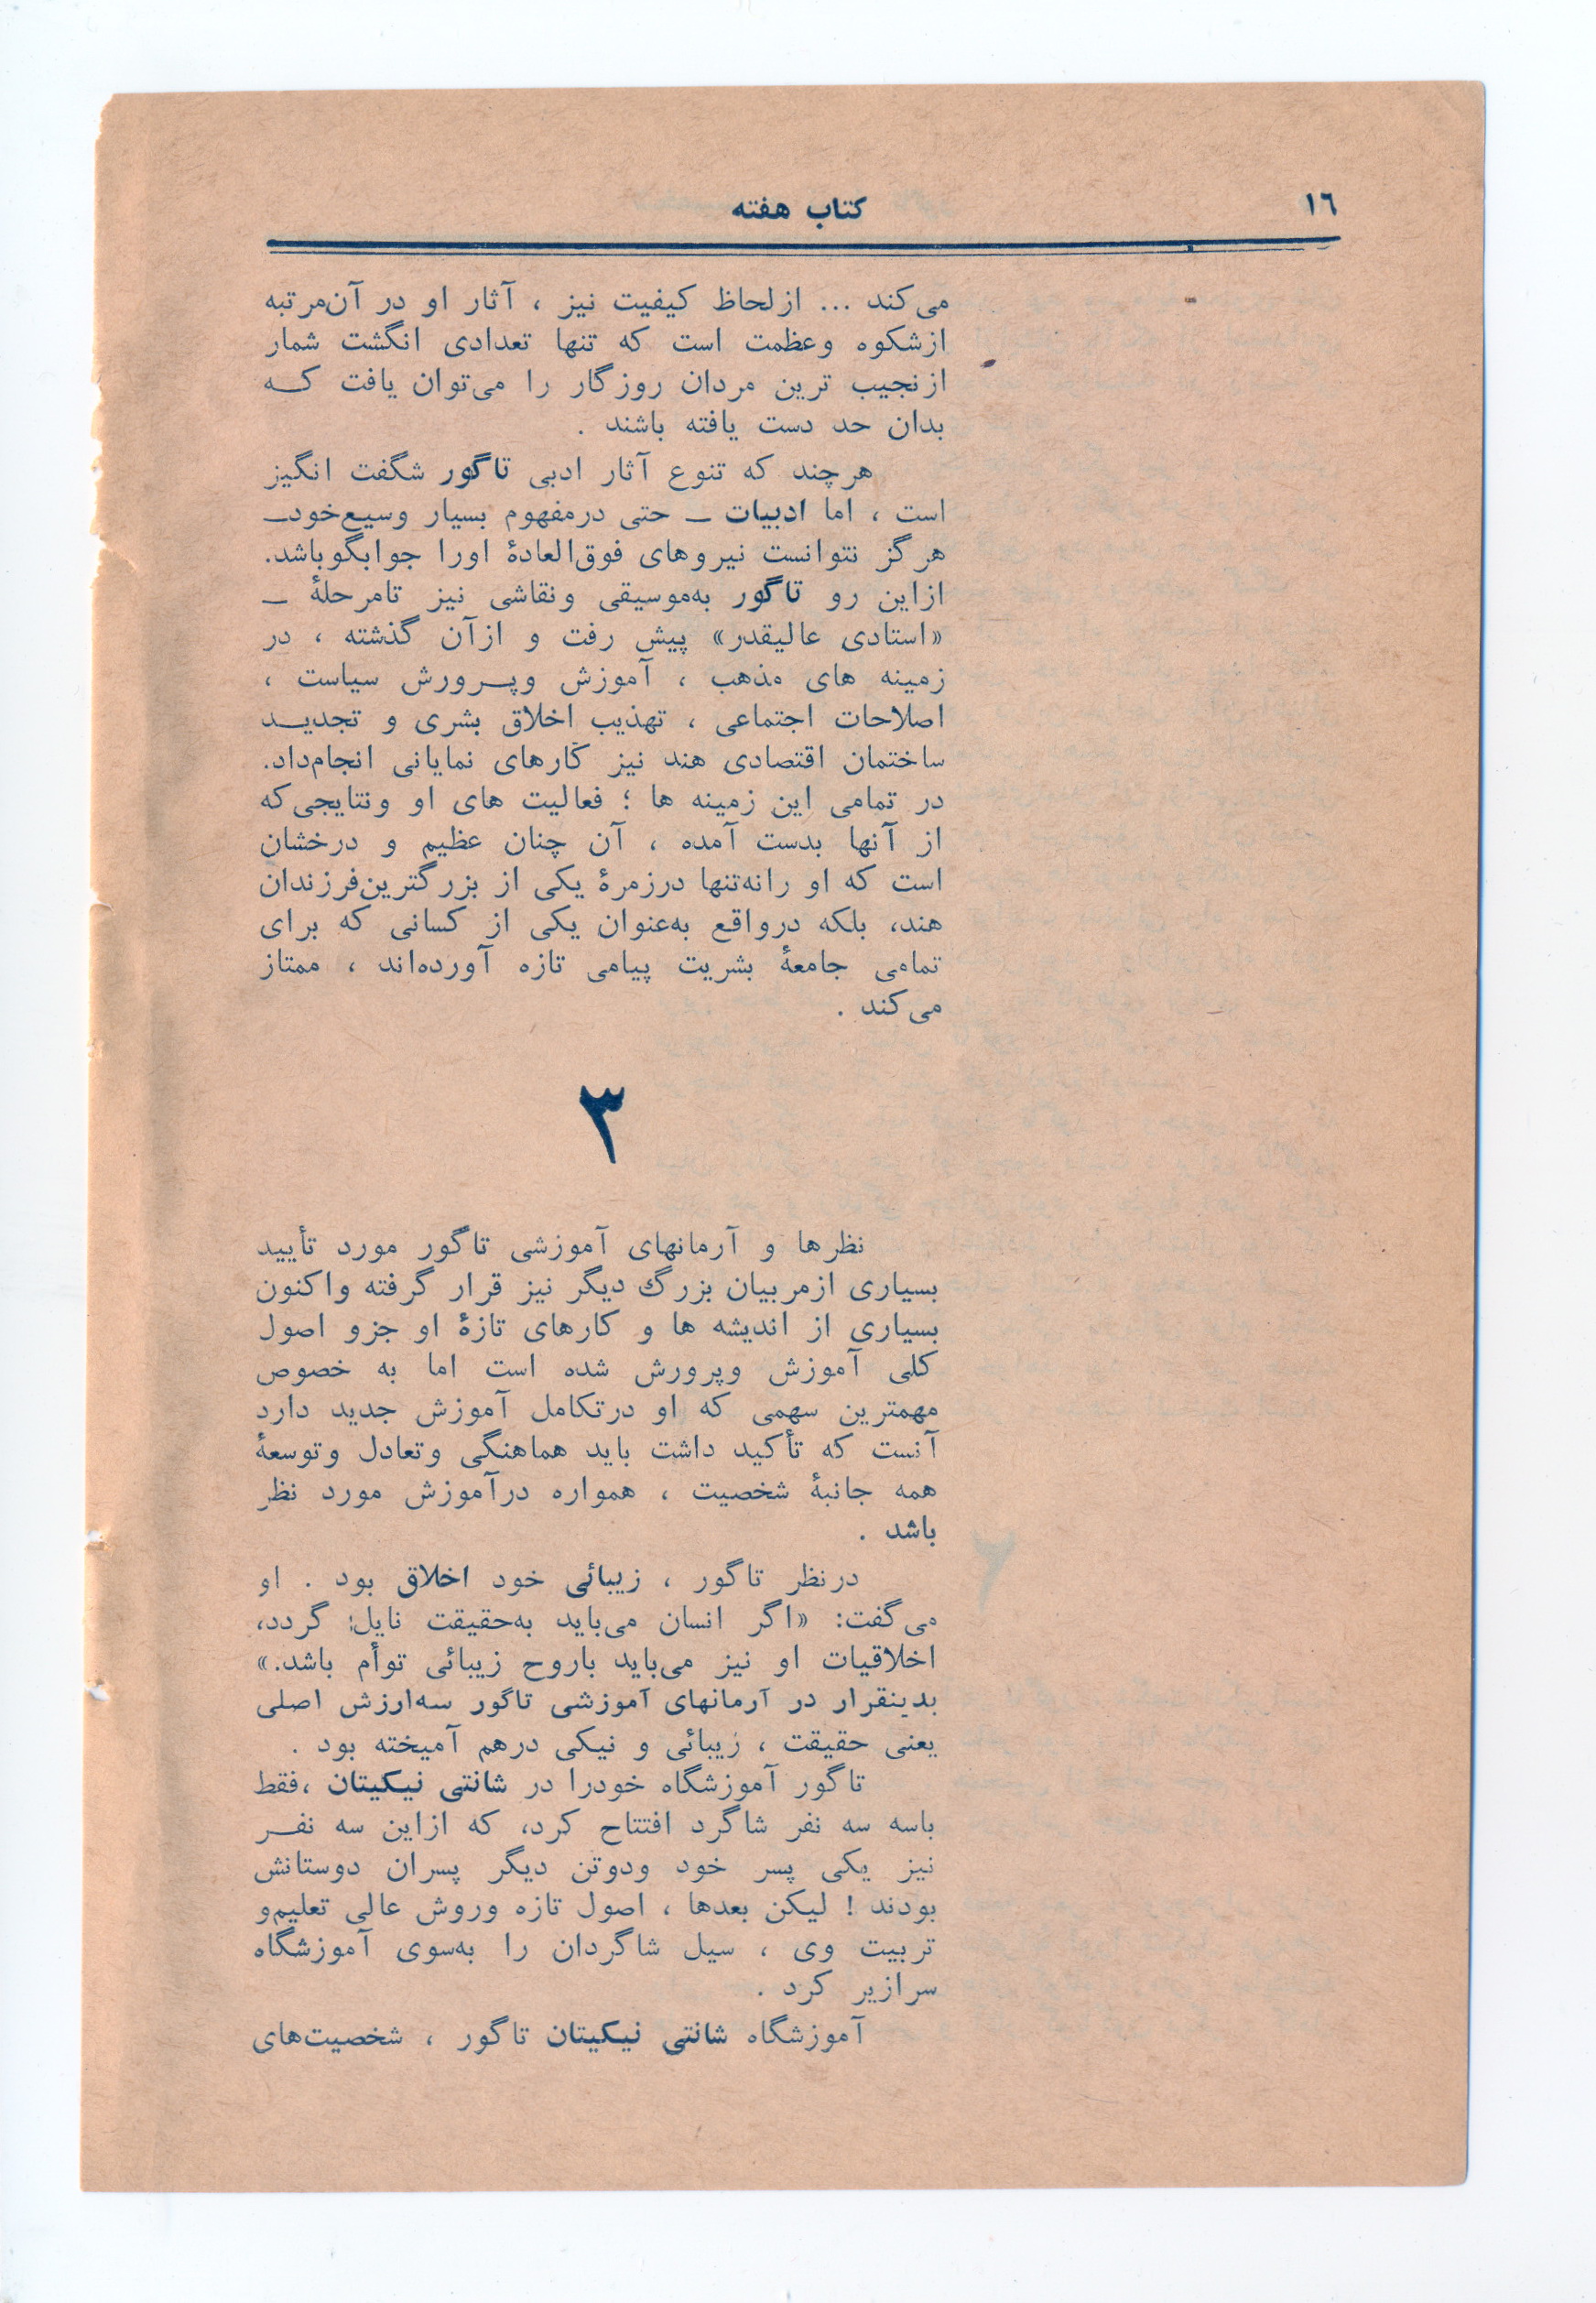 ۱۶
کتاب هفته
می‌کند ... ازلحاظ کیفیت نیز ، آثار او در آن‌مرتبه
ازشکوه وعظمت است که تنها تعدادی انگشت شمار
ازنجیب ترین مردان روزگار را می‌توان یافت کـه
بدان حد دست یافته باشند .
هرچند که تنوع آثار ادبی تاگور شگفت انگیز
است ، اما ادبیات ـ حتی درمفهوم بسیار وسیع‌خودـ
هرگز نتوانست نیروهای فوق‌العادهٔ اورا جوابگوباشد.
ازاین رو تاگور به‌موسیقی ونقاشی نیز تامرحلهٔ ـ
«استادی عالیقدر» پیش رفت و ازآن گذشته ، در
زمینه های مذهب ، آموزش وپـرورش سیاست ،
اصلاحات اجتماعی ، تهذیب اخلاق بشری و تجدیـد
ساختمان اقتصادی هند نیز کارهای نمایانی انجام‌داد.
در تمامی این زمینه ها ؛ فعالیت های او ونتایجی‌که
از آنها بدست آمده ، آن چنان عظیم و درخشان
است که او رانه‌تنها درزمرهٔ یکی از بزرگترین‌فرزندان
هند، بلکه درواقع به‌عنوان یکی از کسانی که برای
تمامی جامعهٔ بشریت پیامی تازه آورده‌اند ، ممتاز
می‌کند .
۳
نظرها و آرمانهای آموزشی تاگور مورد تأیید
بسیاری ازمربیان بزرگ دیگر نیز قرار گرفته واکنون
بسیاری از اندیشه ها و کارهای تازهٔ او جزو اصول
کلی آموزش وپرورش شده است اما به خصوص
مهمترین سهمی که او درتکامل آموزش جدید دارد
آنست که تأکید داشت باید هماهنگی وتعادل وتوسعهٔ
همه جانبهٔ شخصیت ، همواره درآموزش مورد نظر
باشد .
درنظر تاگور ، زیبائی خود اخلاق بود . او
می‌گفت: «اگر انسان می‌باید به‌حقیقت نایل گردد،
اخلاقیات او نیز می‌باید باروح زیبائی توأم باشد.»
بدینقرار در آرمانهای آموزشی تاگور سه‌ارزش اصلی
یعنی حقیقت ، زیبائی و نیکی درهم آمیخته بود .
تاگور آموزشگاه خودرا در شانتی نیکیتان ،فقط
باسه سه نفر شاگرد افتتاح کرد، که ازاین سه نفـر
نیز یکی پسر خود ودوتن دیگر پسران دوستانش
بودند ! لیکن بعدها ، اصول تازه وروش عالی تعلیم‌و
تربیت وی ، سیل شاگردان را به‌سوی آموزشگاه
سرازیر کرد .
آموزشگاه شانتی نیکیتان تاگور ، شخصیت‌های